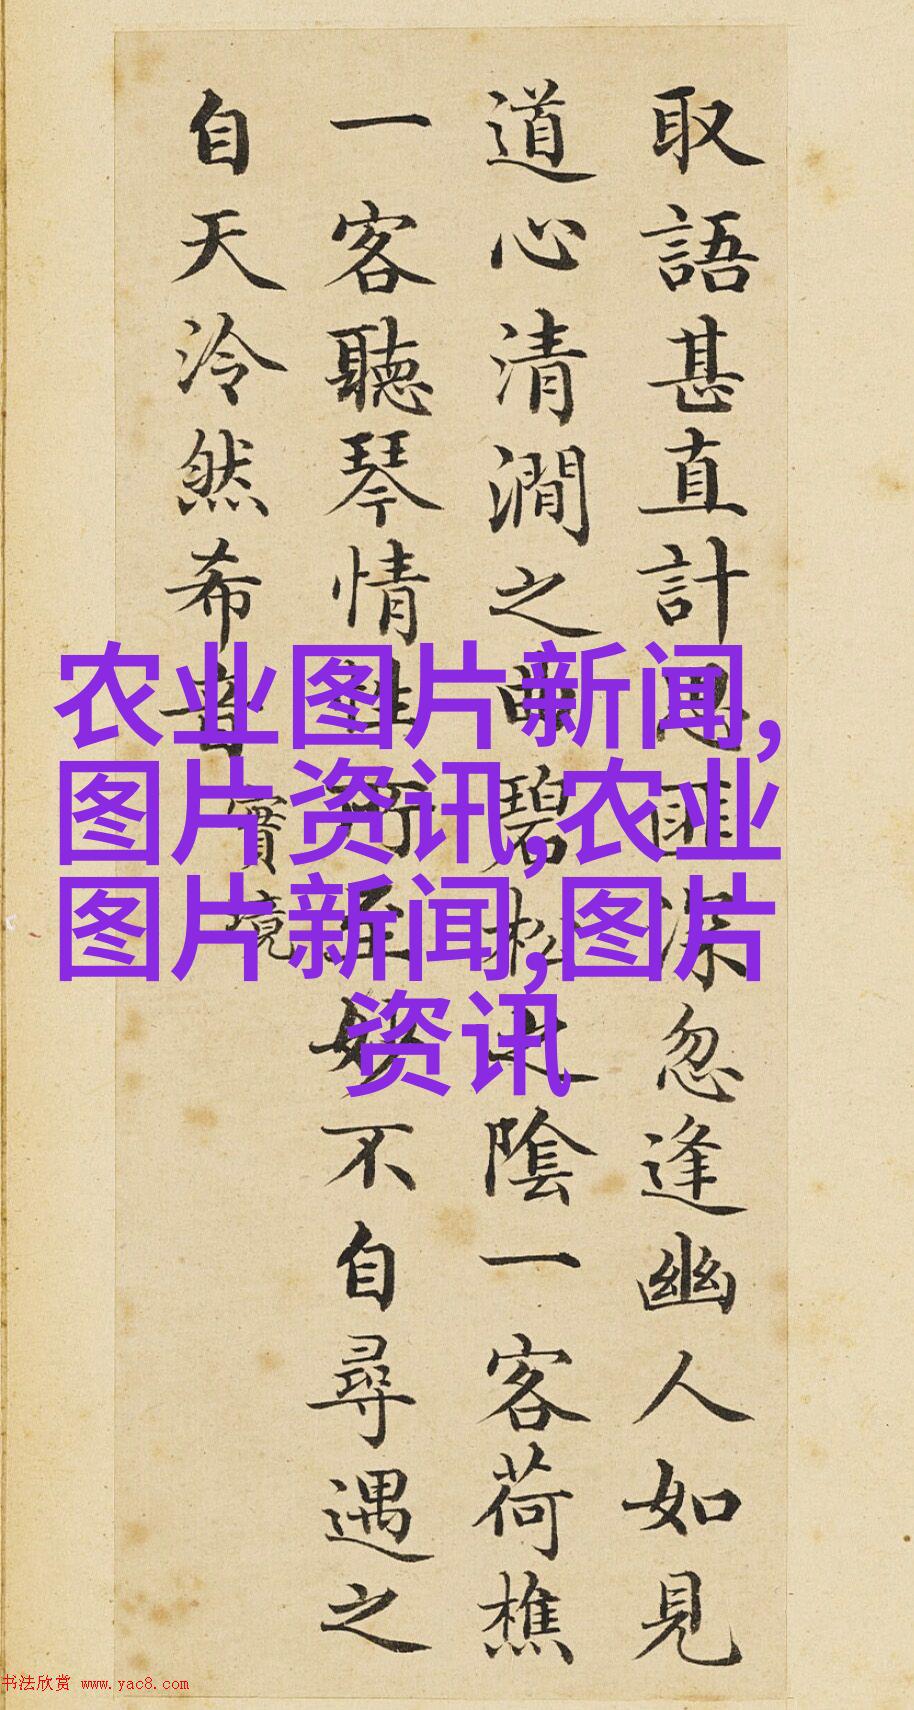 取語甚直計思匪深忽逢幽人如見
道心清澗之曲碧松之陰一客荷樵
一客聽琴情性所至妙不自尋遇之
自天泠然希音
實境
农业图片新闻,
图片资讯,农业
图片新闻,图片
资讯
书法欣赏 www.yac8.com